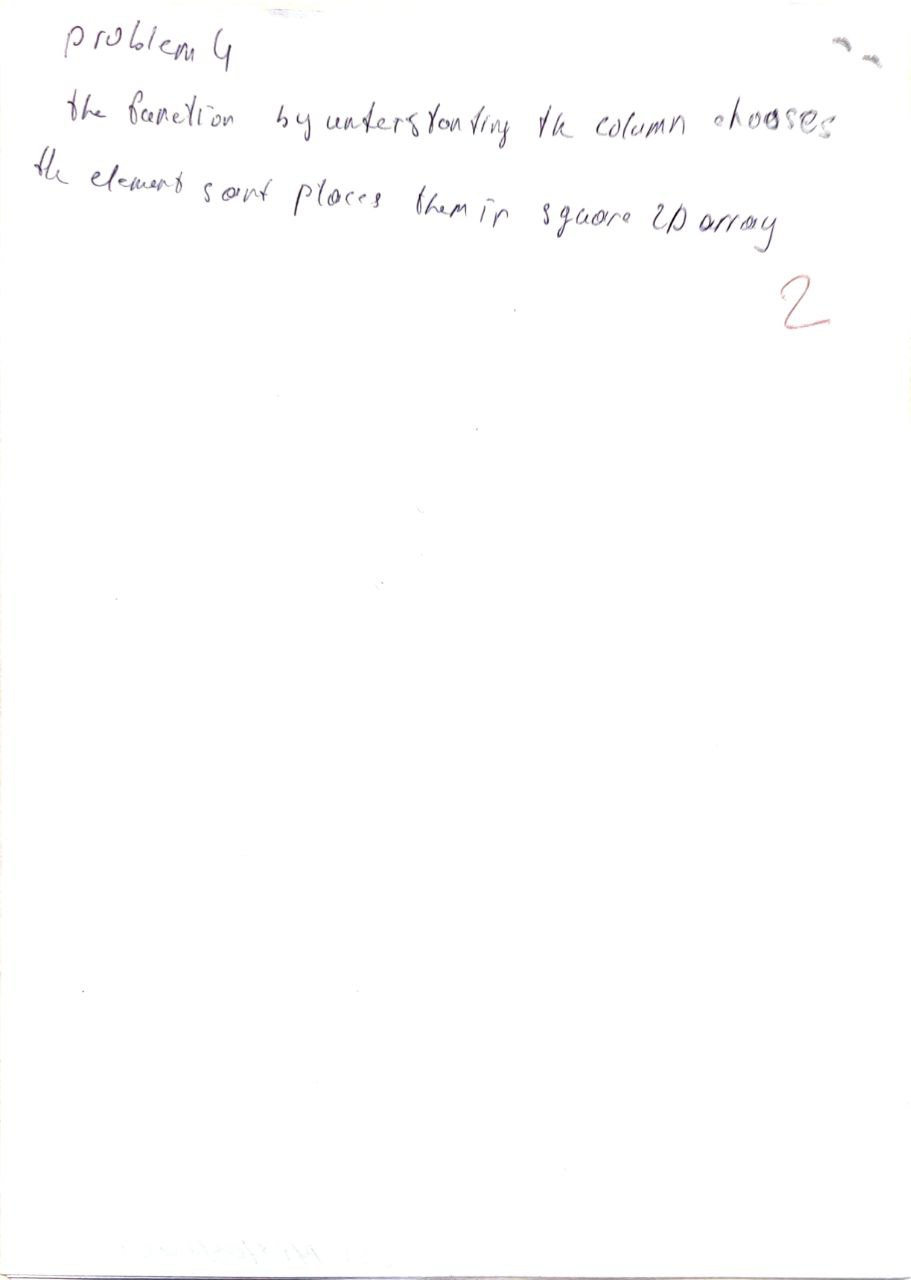 problem 4
the function by understanding the column chooses
the elements and places them in square 2D array
2